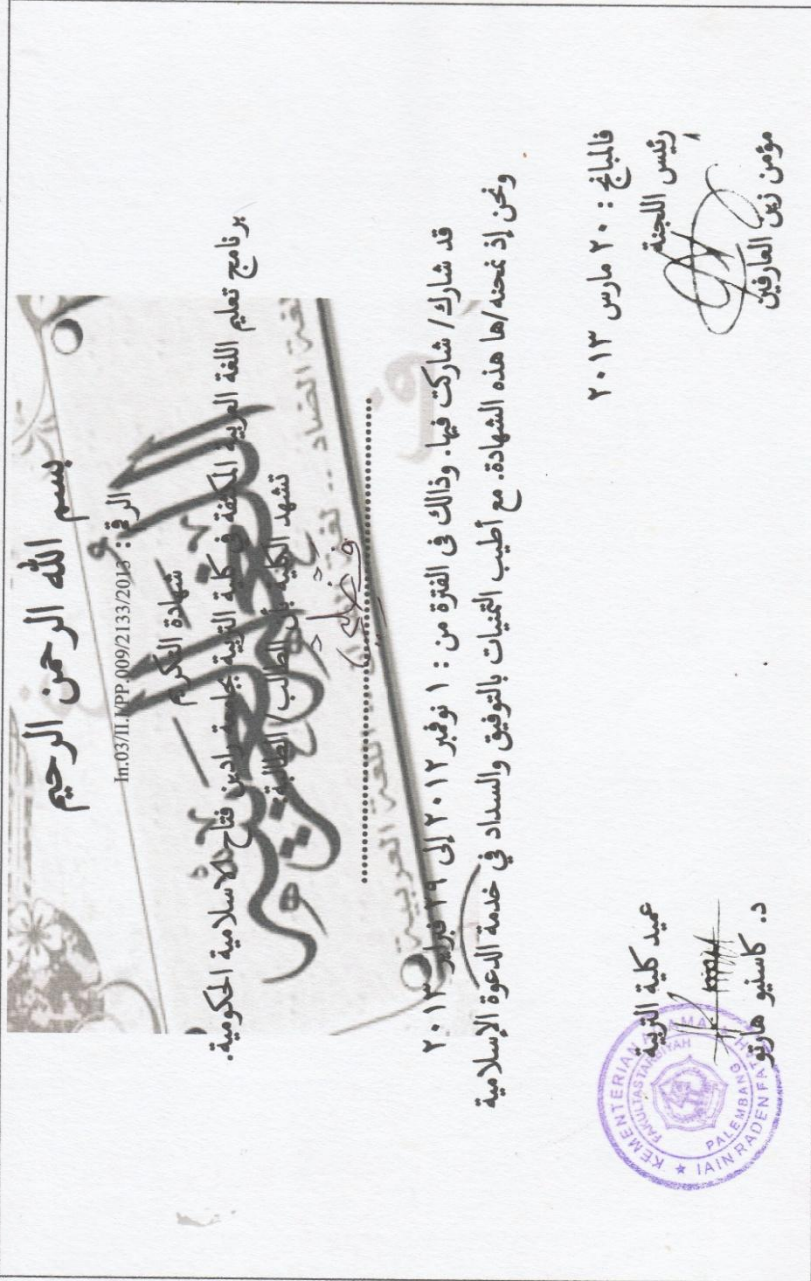 بسم الله الرحمن الرحيم
الرقم :
In.03/II.I/PP.009/2133/2013
شهادة التكريم
برنامج تعليم اللغة العربية المكثفة في كلية التربية بجامعة رادين فتاح الاسلامية الحكومية.
تشهد الكلية بأن الطالب/ الطالبة
قد شارك/ شاركت فيها. وذالك في الفترة من : ١ نوفمبر ٢٠١٢ إلى ٢٩ فبراير ٢٠١٣
ونحن إذ نمحنه/ها هذه الشهادة. مع أطيب التمنيات بالتوفيق والسداد في خدمة الدعوة الإسلامية
فالمبانج : ٢٠ مارس ٢٠١٣
رئيس اللجنة
عميد كلية التربية
مؤمن زين العارفين
د. كاسنيو هارتو
KEMENTERIAN AGAMA
FAKULTAS TARBIYAH
PALEMBANG
IAIN RADEN FATAH
لغة الضاد ..
اللغة العربية